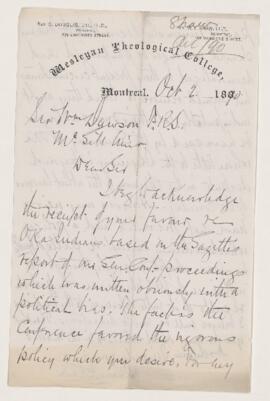 REV. G. DOUGLAS, LL.D.,
PRINCIPAL,
Oct 1/90
Wesleyan Theological College,
Montreal, Oct 2 1890
Sir Wm Dawson F.R.S.
McGill Univ
Dear Sir
I beg to acknowledge
the receipt of your favour re
Oka Indians based on the Gazette
report of our Gen. Conf. proceedings
which was written obviously with a
political bias. The fact is the
Conference favored the vigorous
policy which you desire. For my